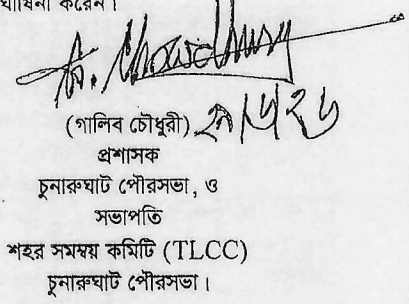 ঘোষনা করেন।
(গালিব চৌধুরী) ২৯/৬/২৬
প্রশাসক
চুনারুঘাট পৌরসভা, ও
সভাপতি
শহর সমম্বয় কমিটি (TLCC)
চুনারুঘাট পৌরসভা।